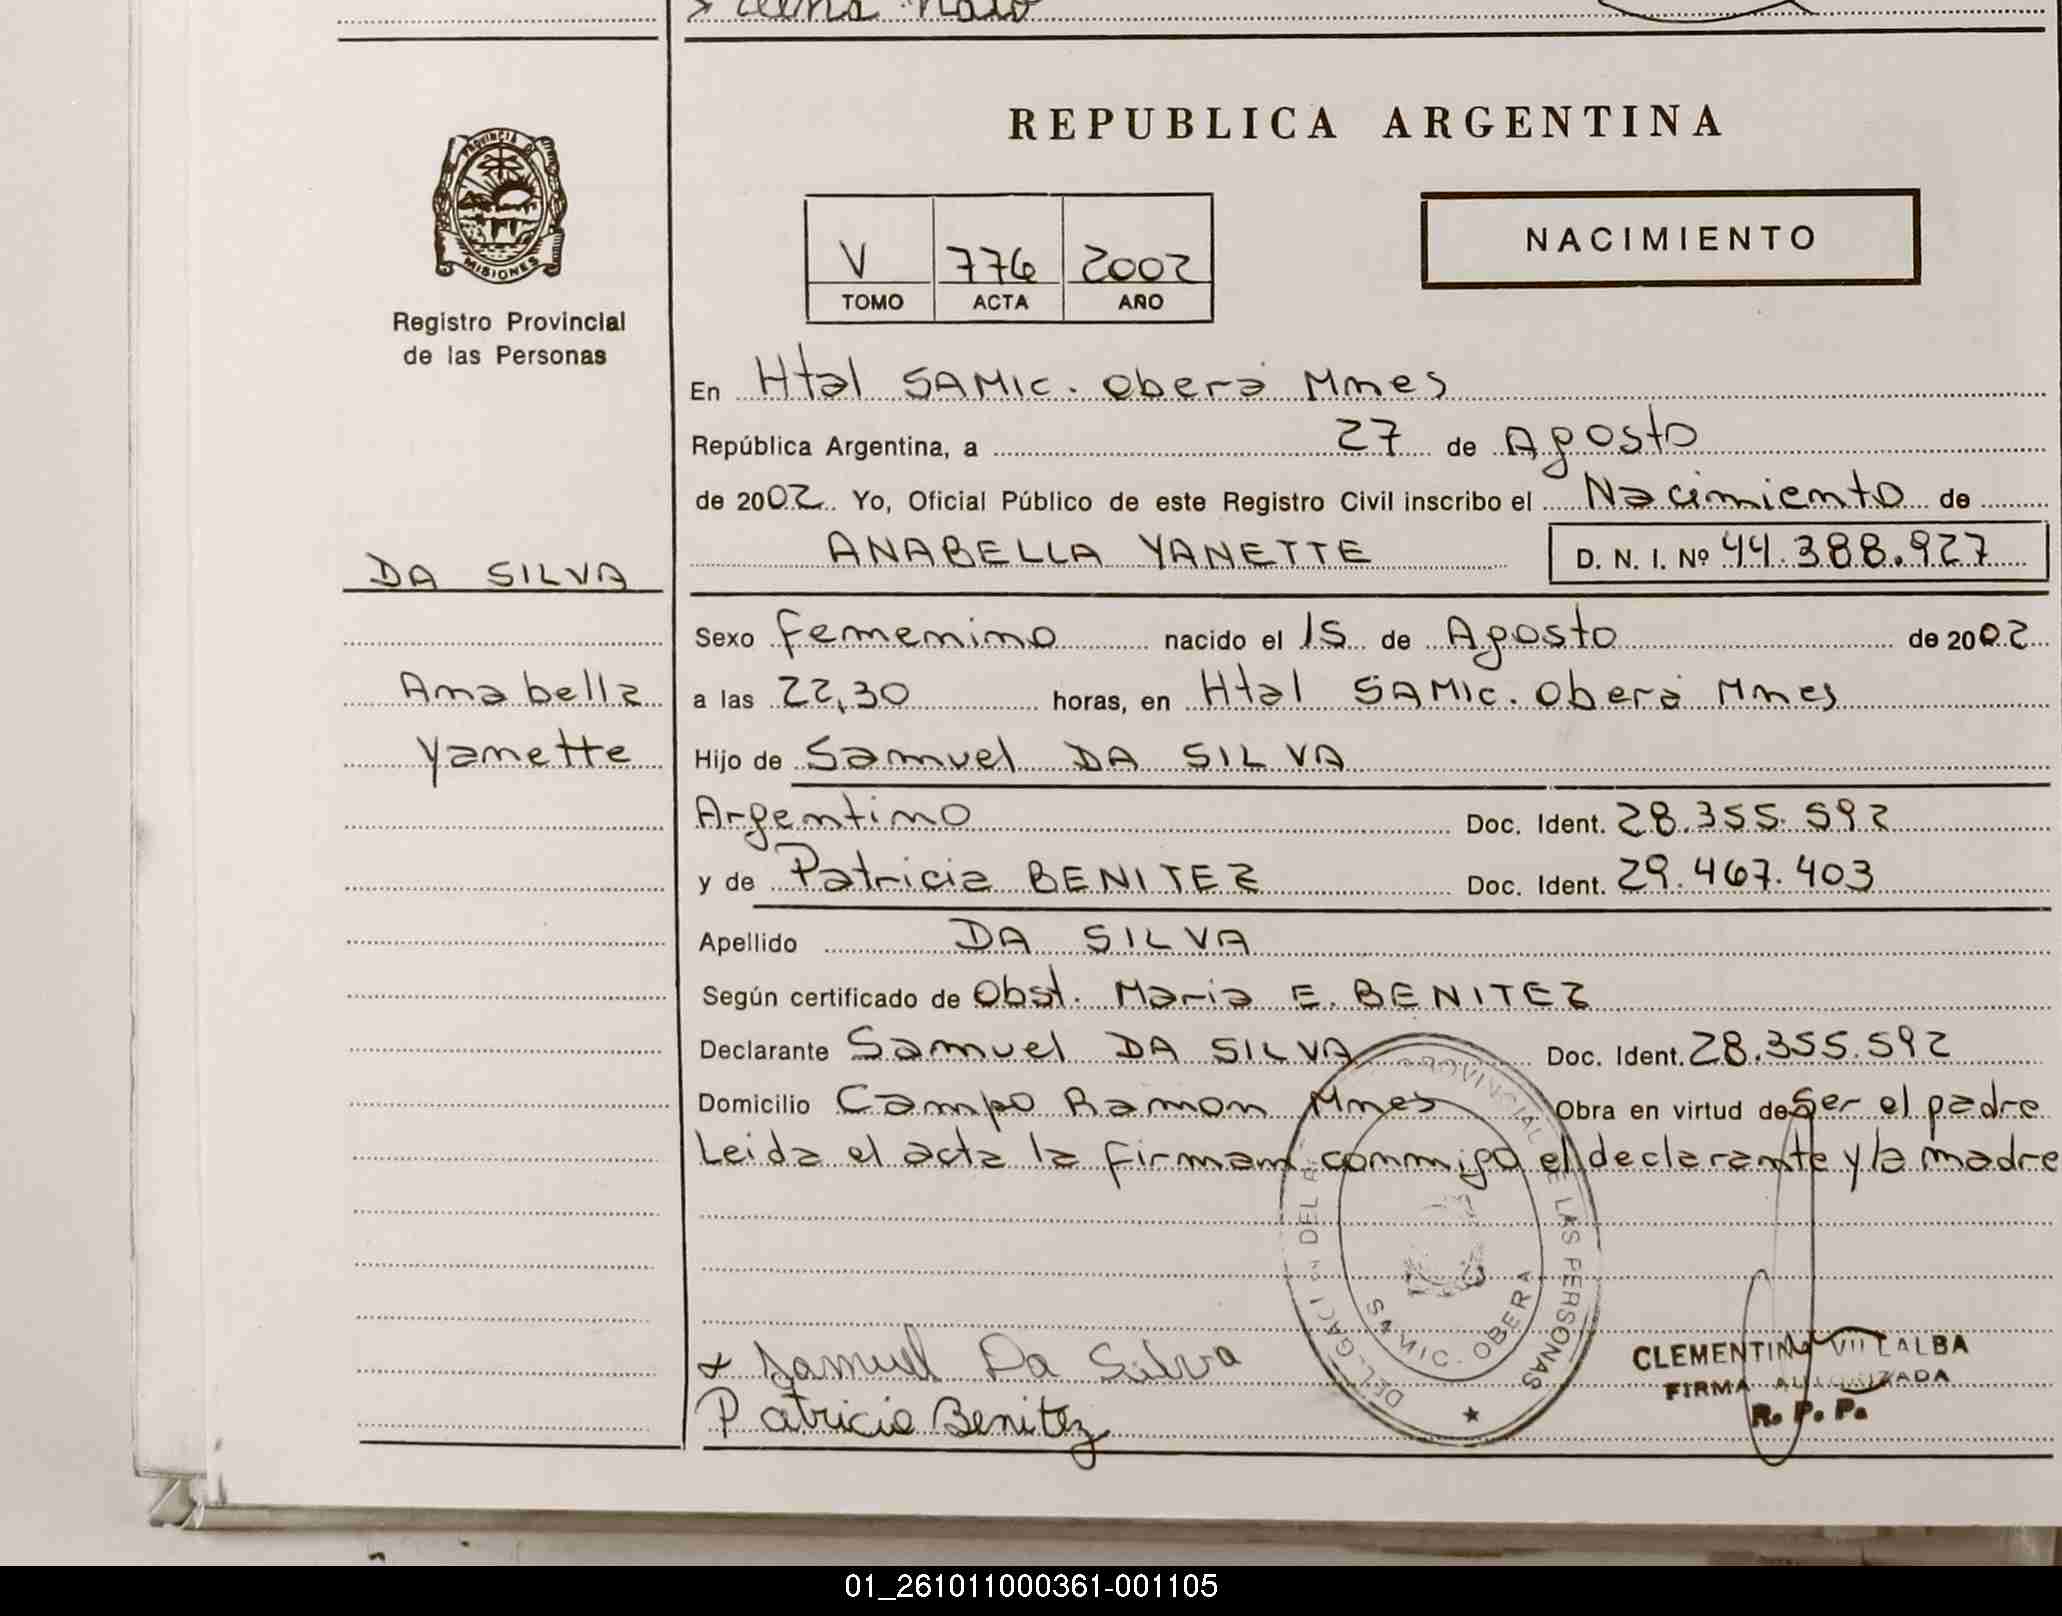 REPUBLICA ARGENTINA
PROVINCIA DE
MISIONES
Registro Provincial
de las Personas
V 776 2002
TOMO ACTA AÑO
NACIMIENTO
En Htal SAMIC. Oberá Mnes
República Argentina, a 27 de Agosto
de 2002 Yo, Oficial Público de este Registro Civil inscribo el Nacimiento de
ANABELLA YANETTE D. N. I. Nº 44.388.927
DA SILVA
Anabella
Yanette
Sexo femenino nacido el 15 de Agosto de 2002
a las 22,30 horas, en Htal SAMIC. Oberá Mnes
Hijo de Samuel DA SILVA
Argentino Doc. Ident. 28.355.592
y de Patricia BENITEZ Doc. Ident. 29.467.403
Apellido DA SILVA
Según certificado de Obst. Maria E. BENITEZ
Declarante Samuel DA SILVA Doc. Ident. 28.355.592
Domicilio Campo Ramon Mnes Obra en virtud de Ser el padre
Leida el acta la firman conmigo el declarante y la madre
PROVINCIAL DE LAS PERSONAS
SAMIC. OBERA
Samuel Da Silva
Patricia Benitez
VILLALBA
FIRMA AUTORIZADA
R. P. P.
01_261011000361-001105